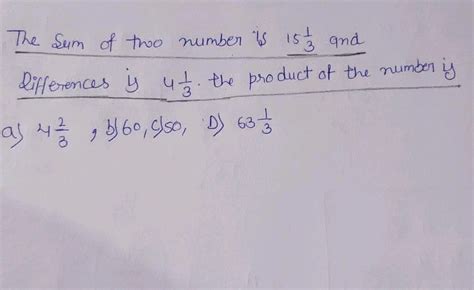 The Sum of two number is 15 1/3 and
Differences is 4 1/3. the product of the number is
a) 4 2/3, b) 60, c) 50, D) 63 1/3